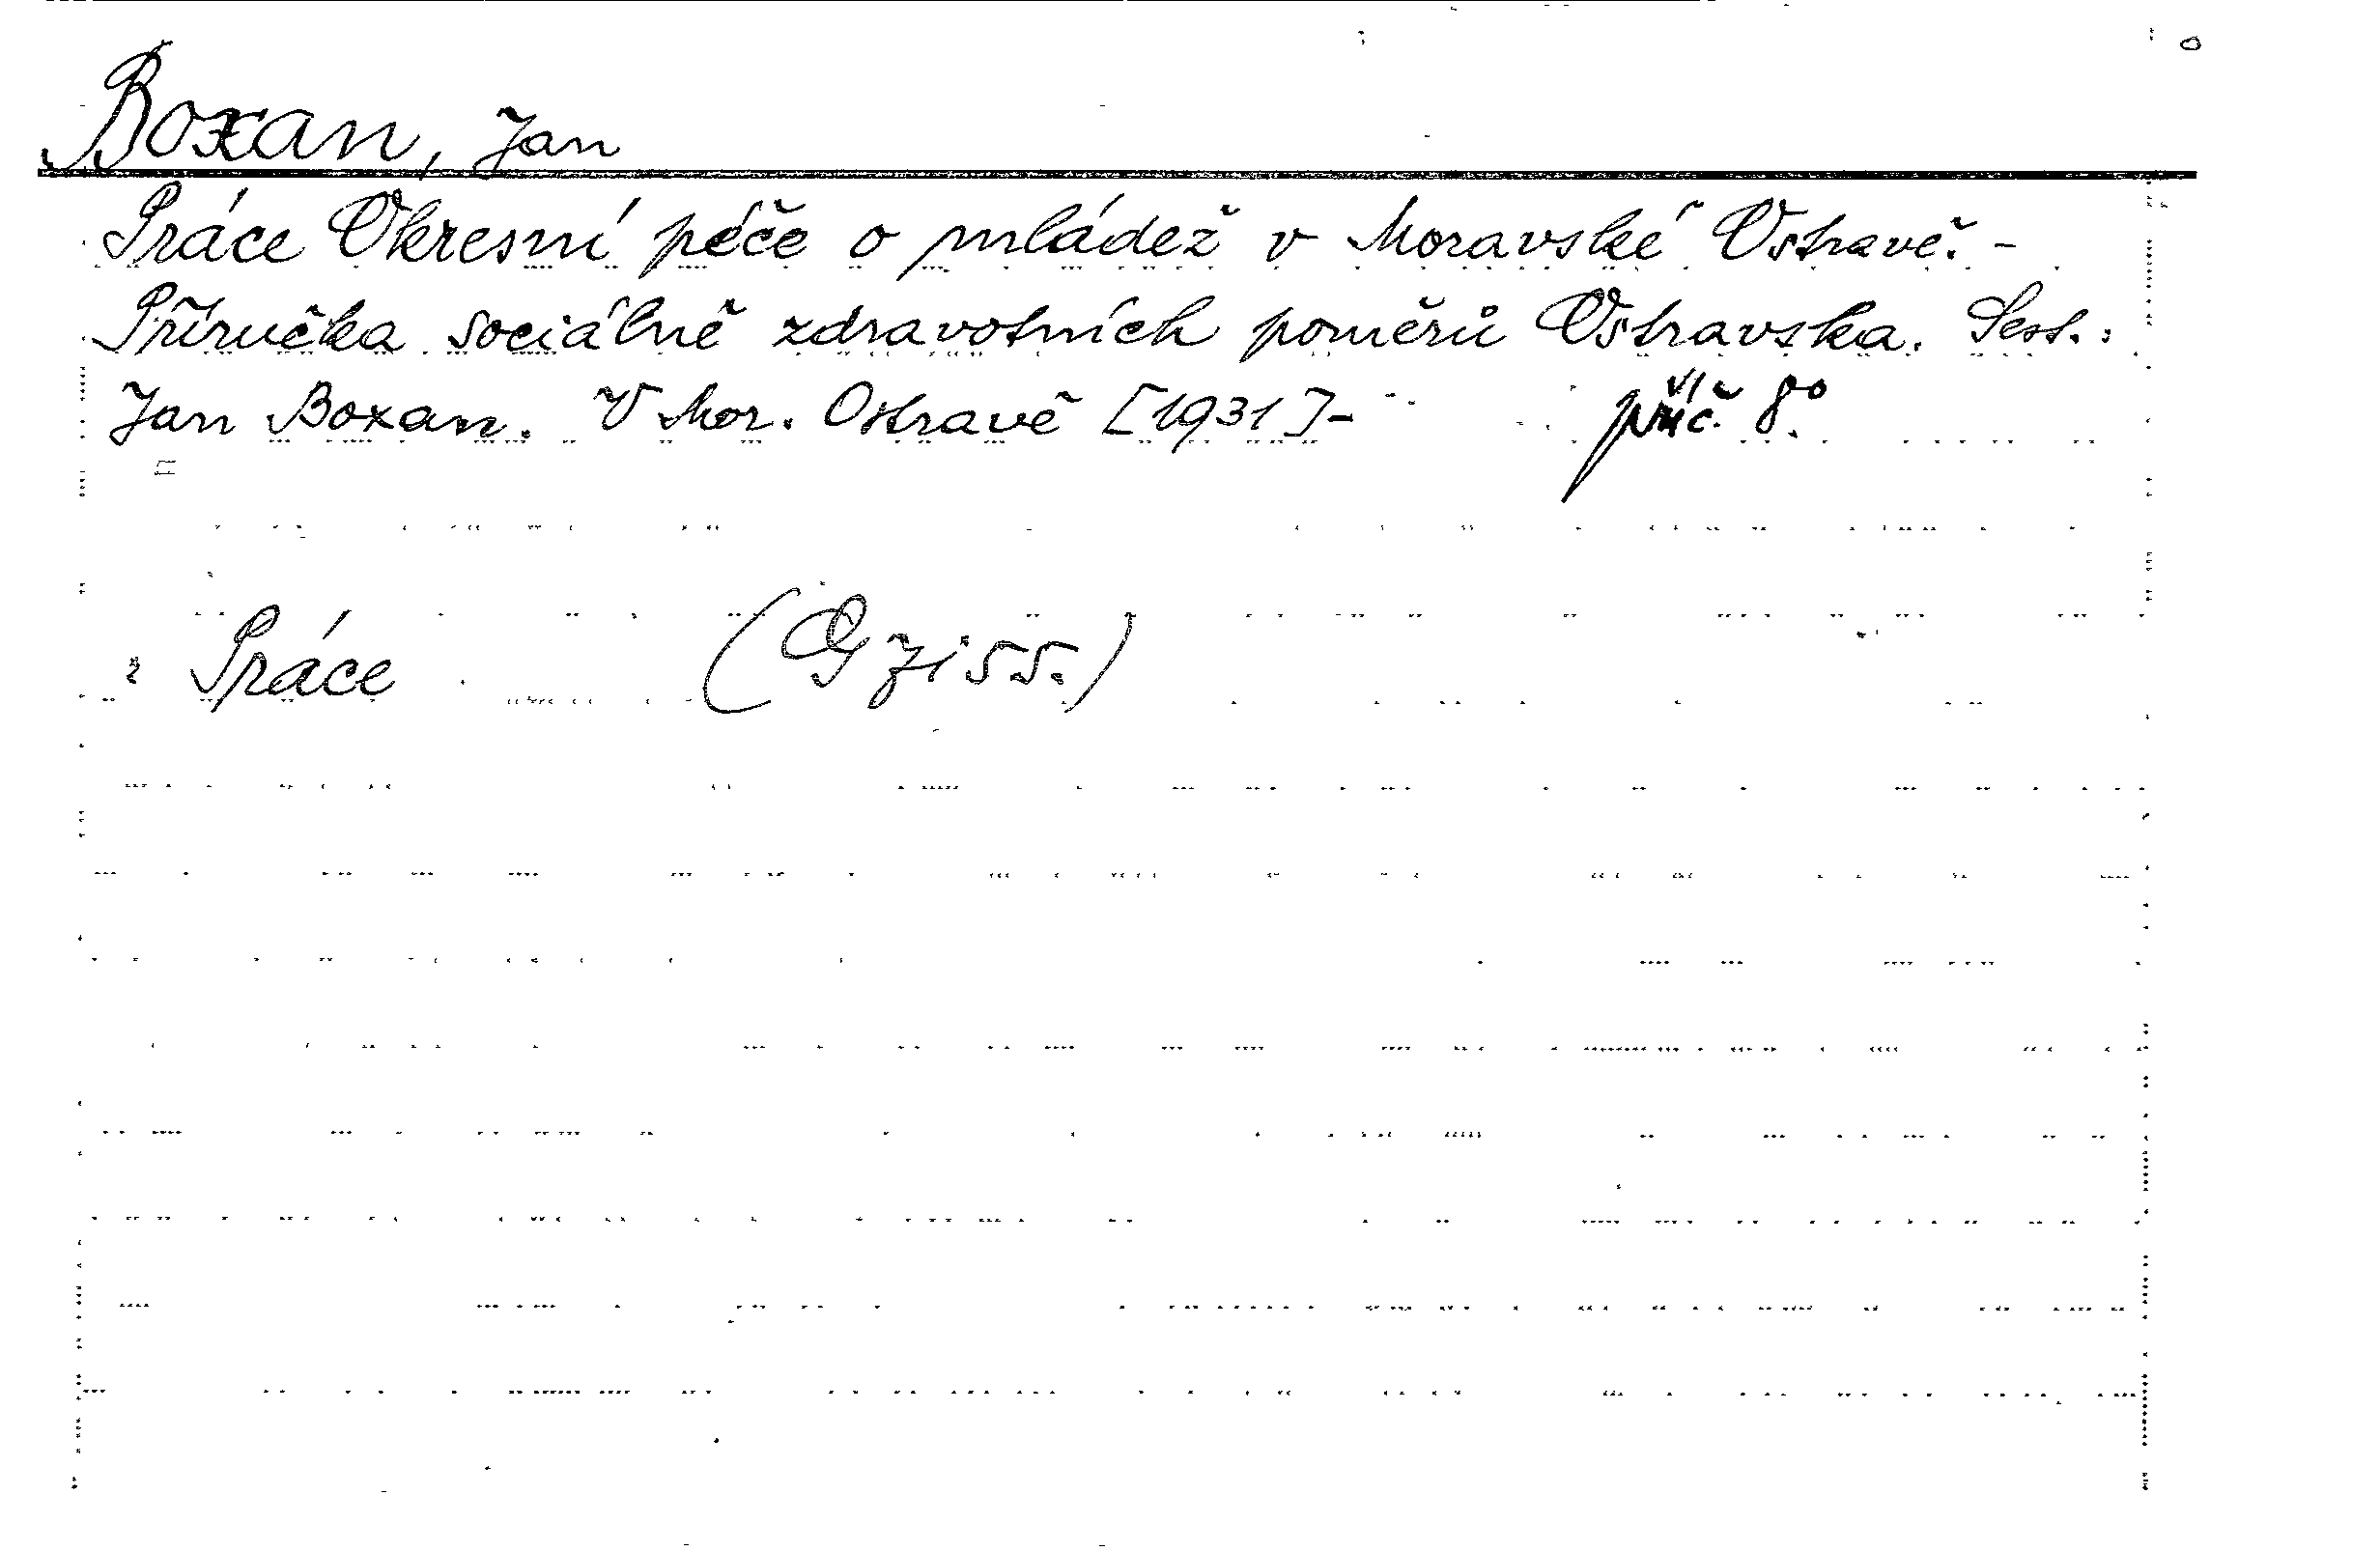 Boxan, Jan
Práce Okresní péče o mládež v Moravské Ostravě. -
Příručka sociálně zdravotních poměrů Ostravska. Sest.:
Jan Boxan. V Mor. Ostravě [1931]- příč. 8°
Práce